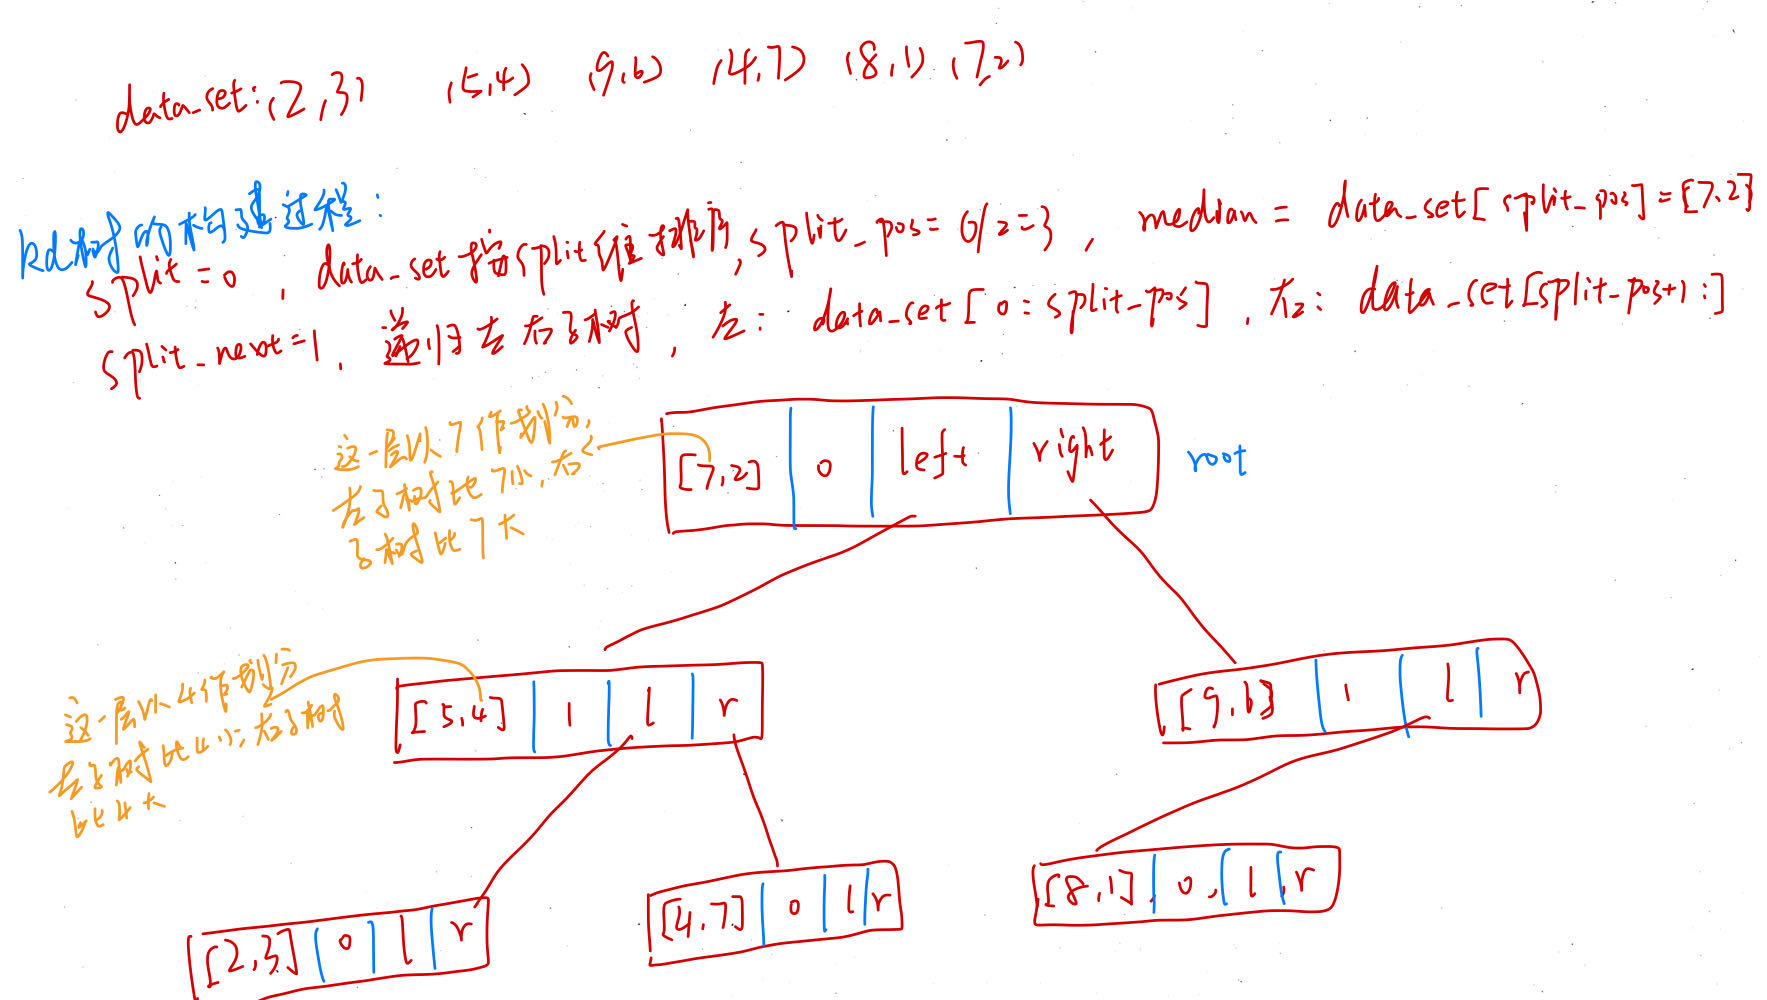 data_set:(2,3) (5,4) (9,6) (4,7) (8,1) (7,2)
kd树的构建过程:
split=0, data_set按split维排序, split_pos=6/2=3, median = data_set[split_pos]=[7,2]
split_next=1, 递归左右子树, 左: data_set[0:split_pos], 右: data_set[split_pos+1:]
这一层以7作划分,
左子树比7小,右
子树比7大
[7,2] 0 left right root
这一层以4作划分
左子树比4小,右子树
比4大
[5,4] 1 l r
[9,6] 1 l r
[2,3] 0 l r
[4,7] 0 l r
[8,1] 0 l r